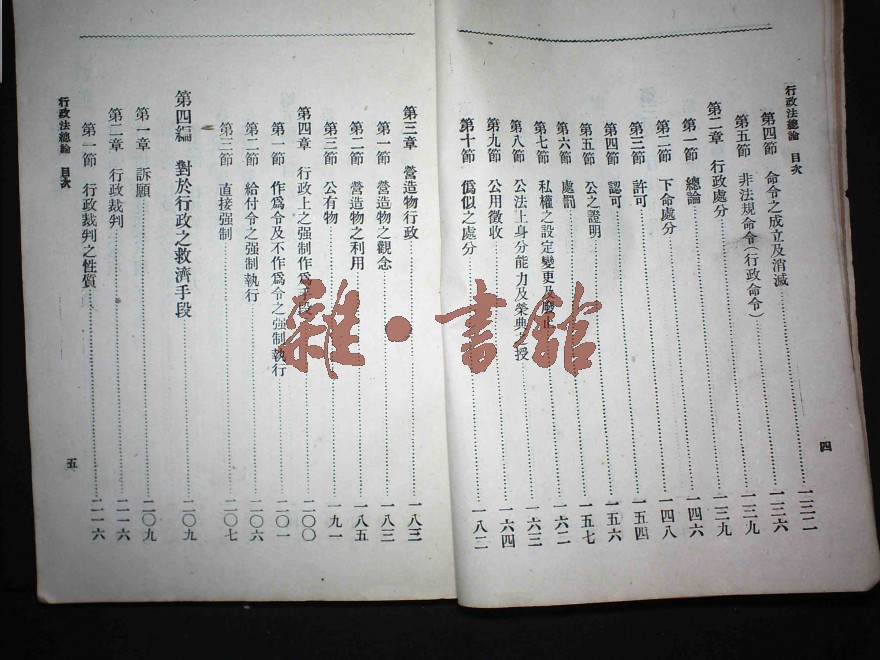 行政法總論 目次
第四節 命令之成立及消滅……一三二
第五節 非法規命令(行政命令)……一三六
第二章 行政處分……一三九
第一節 總論……一三九
第二節 下命處分……一四六
第三節 許可……一四八
第四節 認可……一五四
第五節 公之證明……一五六
第六節 處罰……一五七
第七節 私權之設定變更及廢止……一六二
第八節 公法上身分能力及榮典 授……一六三
第九節 公用徵收……一六四
第十節 僞似之處分……一八二
四
第三章 營造物行政……一八三
第一節 營造物之觀念……一八三
第二節 營造物之利用……一八五
第三節 公有物……一九一
第四章 行政上之强制作爲手段……二〇〇
第一節 作爲令及不作爲令之强制執行……二〇一
第二節 給付令之强制執行……二〇六
第三節 直接强制……二〇七
第四編 對於行政之救濟手段……二〇九
第一章 訴願……二〇九
第二章 行政裁判……二一六
第一節 行政裁判及性質……二一六
行政法總論 目次
五
雜·書館